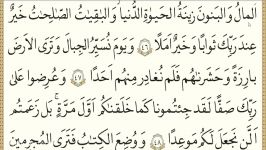 الْمَالُ وَالْبَنُونَ زِينَةُ الْحَيَوٰةِ الدُّنْيَا وَالْبَٰقِيَٰتُ الصَّٰلِحَٰتُ خَيْرٌ
عِندَ رَبِّكَ ثَوَابًا وَخَيْرٌ أَمَلًا ٤٦ وَيَوْمَ نُسَيِّرُ الْجِبَالَ وَتَرَى الْأَرْضَ
بَارِزَةً وَحَشَرْنَٰهُمْ فَلَمْ نُغَادِرْ مِنْهُمْ أَحَدًا ٤٧ وَعُرِضُوا عَلَىٰ
رَبِّكَ صَفًّا لَّقَدْ جِئْتُمُونَا كَمَا خَلَقْنَٰكُمْ أَوَّلَ مَرَّةٍۭ ۚ بَلْ زَعَمْتُمْ
أَلَّن نَّجْعَلَ لَكُم مَّوْعِدًا ٤٨ وَوُضِعَ الْكِتَٰبُ فَتَرَى الْمُجْرِمِينَ